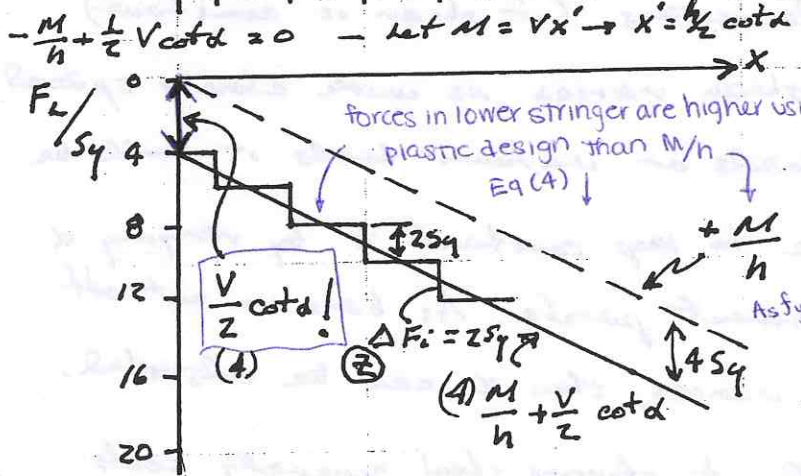 - M/h + 1/2 V cot α = 0 — Let M = Vx' → x' = h/2 cot α
0
x
F_L/Sy
forces in lower stringer are higher usi
plastic design than M/h
4
Eq (4) ↓
8
2Sy
+ M/h
V/2 cot α!
12
Asfy
ΔFi = 2Sy
4Sy
(4)
Z
16
(4) M/h + V/2 cot α
20